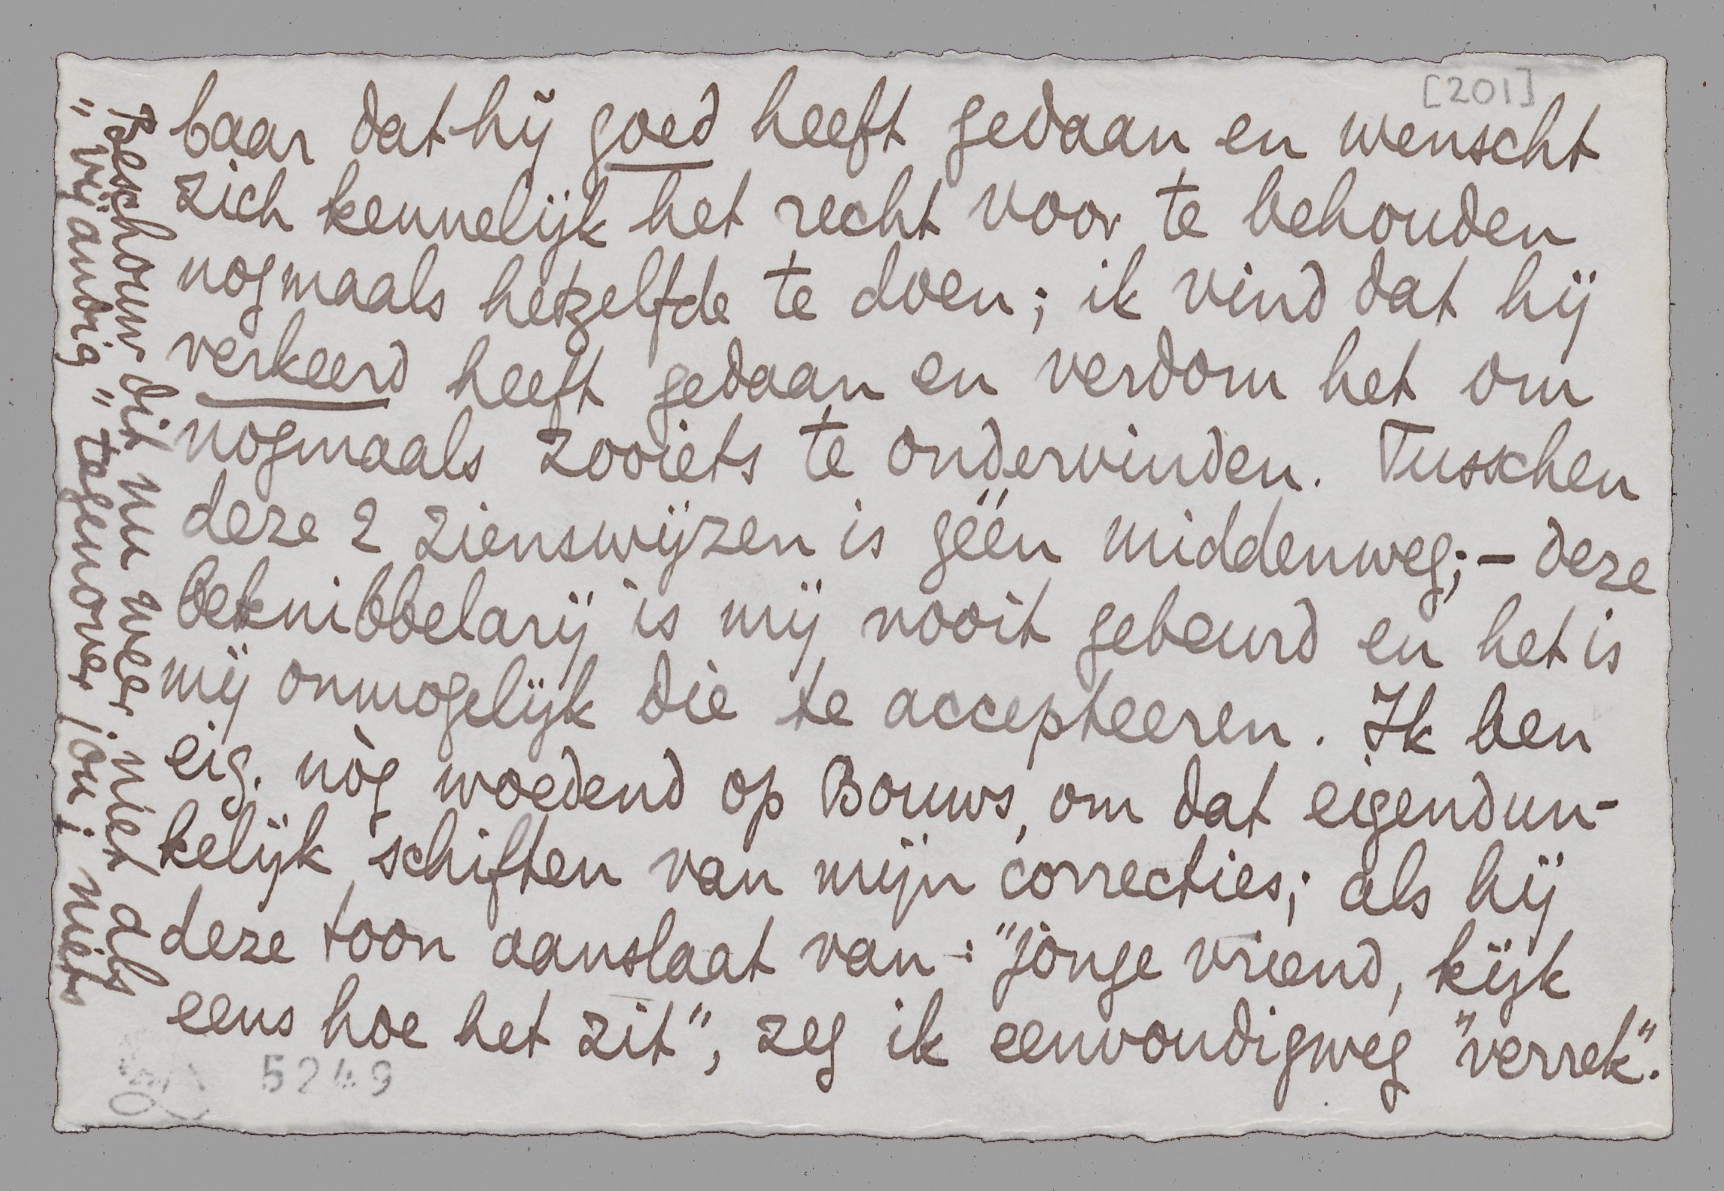 [201]
baar dat hij goed heeft gedaan en wenscht
zich kennelijk het recht voor te behouden
nogmaals hetzelfde te doen; ik vind dat hij
verkeerd heeft gedaan en verdom het om
nogmaals zooiets te ondervinden. Tusschen
deze 2 zienswijzen is géén middenweg; – deze
beknibbelarij is mij nooit gebeurd en het is
mij onmogelijk die te accepteeren. Ik ben
eig. nòg woedend op Bouws, om dat eigendun-
kelijk schiften van mijn correcties; als hij
deze toon aanslaat van: "jonge vriend, kijk
eens hoe het zit", zeg ik eenvoudigweg "verrek".
Beschouw dit nu weer niet als
"vijandig" tegenover jou; niets
5249